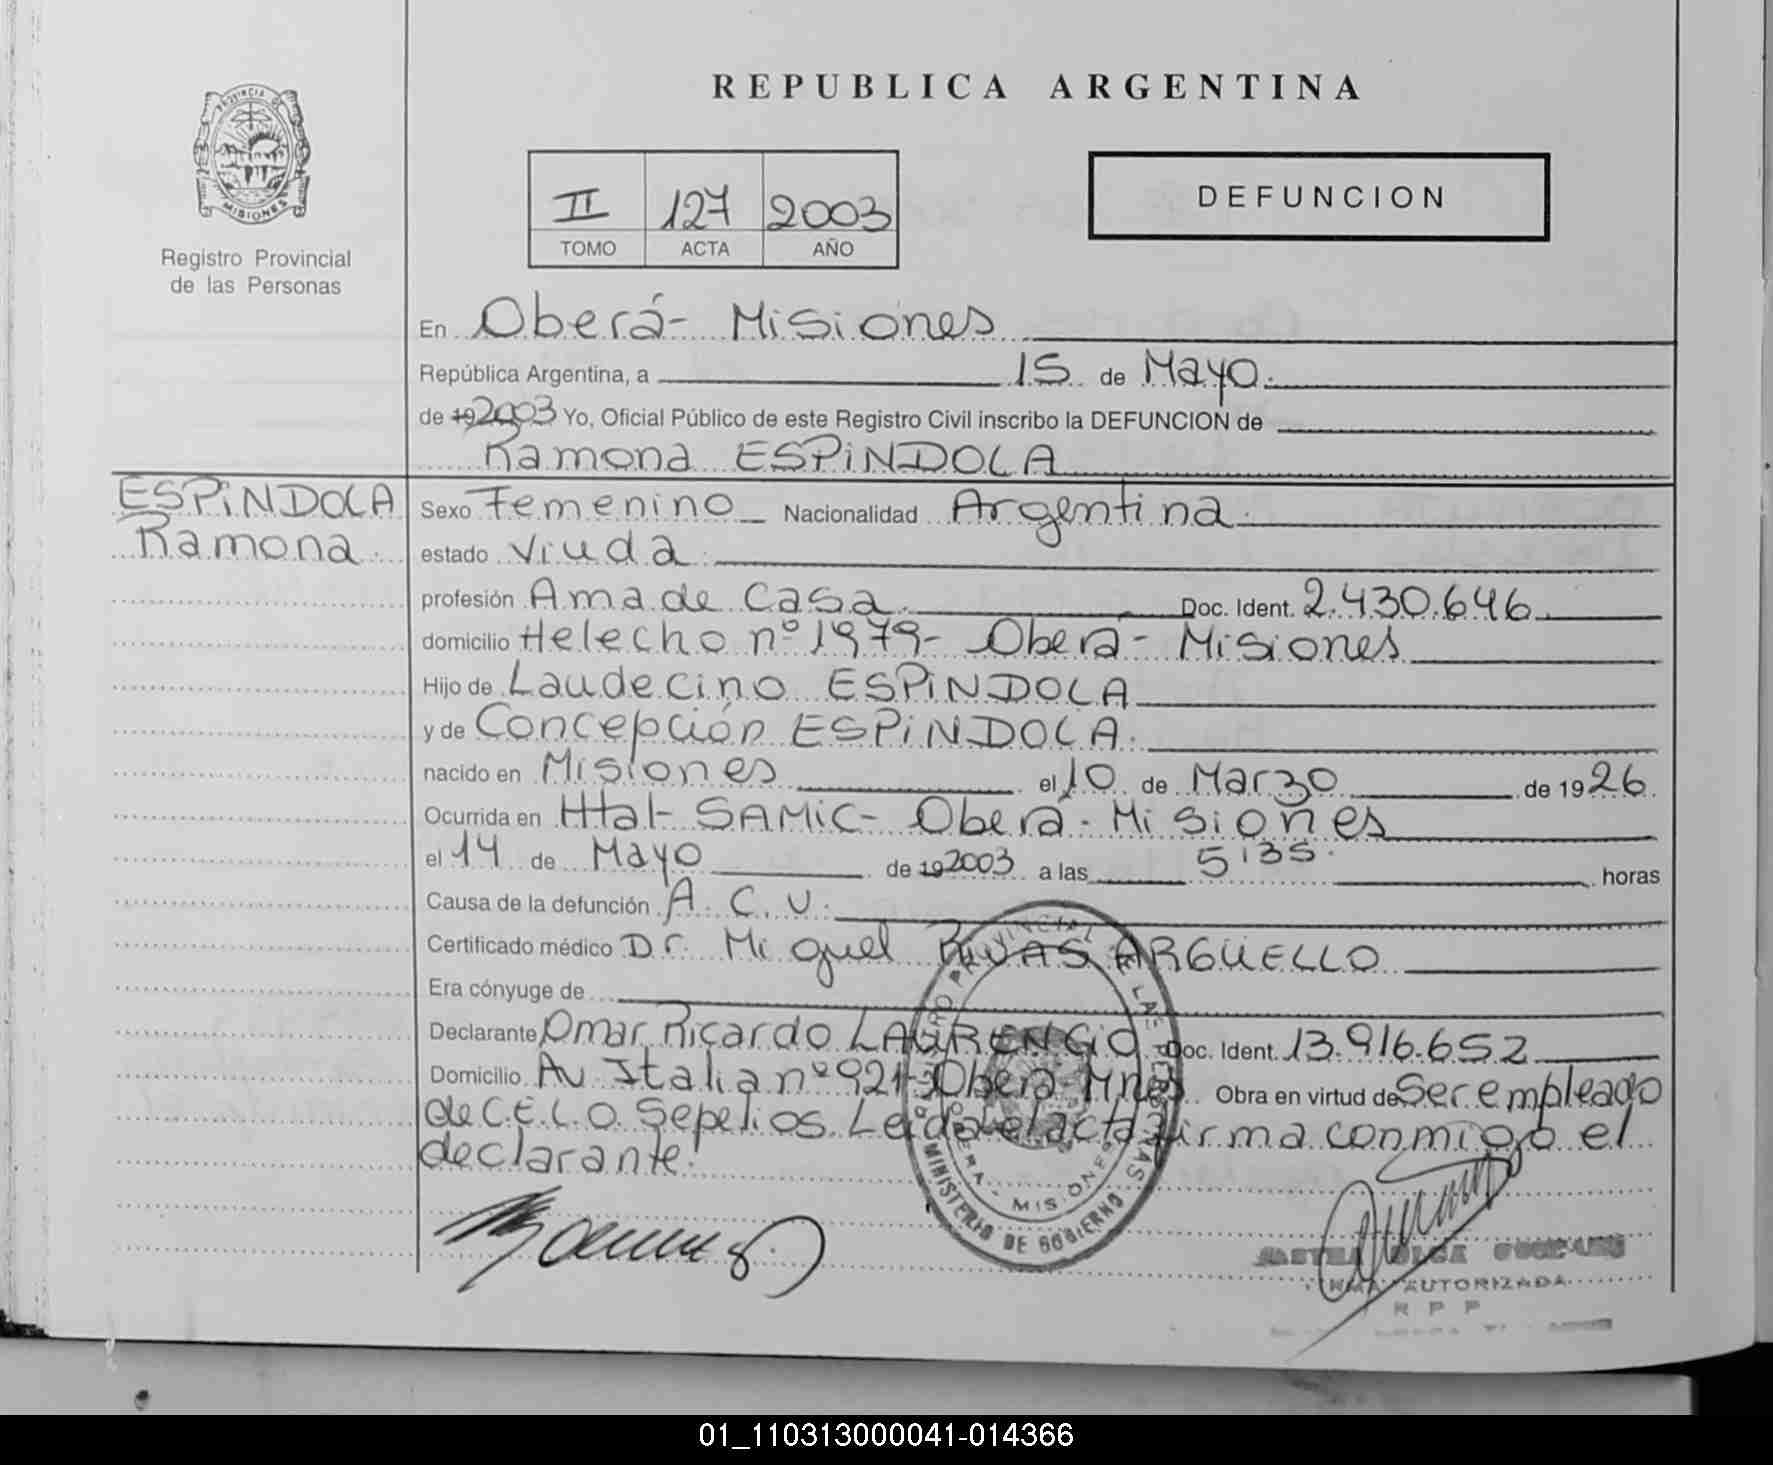 REPUBLICA ARGENTINA
PROVINCIA DE
MISIONES
Registro Provincial
de las Personas
II 127 2003
TOMO ACTA AÑO
DEFUNCION
En Oberá- Misiones
República Argentina, a 15 de Mayo.
de 192003 Yo, Oficial Público de este Registro Civil inscribo la DEFUNCION de
Ramona ESPiNDOLA
ESPiNDOLA
Ramona.
Sexo Femenino Nacionalidad Argentina.
estado Viuda.
profesión Ama de Casa. Doc. Ident. 2.430.646.
domicilio Helecho nº 1979- Oberá- Misiones
Hijo de Laudecino ESPiNDOLA
y de Concepción ESPiNDOLA.
nacido en Misiones el 10 de Marzo de 1926
Ocurrida en Htal- SAMiC- Oberá- Misiones
el 14 de Mayo de 192003 a las 5:35. horas
Causa de la defunción A. C. V.
Certificado médico Dr. Miguel RIVAS ARGÜELLO
Era cónyuge de
Declarante Omar Ricardo LAURENCIO Doc. Ident. 13.916.652
Domicilio Av Italia nº 921- Oberá Mnes Obra en virtud de Ser empleado
de C.E.L.O. Sepelios. Leída el acta firma conmigo el
declarante.
MINISTERIO DE GOBIERNO
MISIONES
FIRMA AUTORIZADA
R P P
01_110313000041-014366